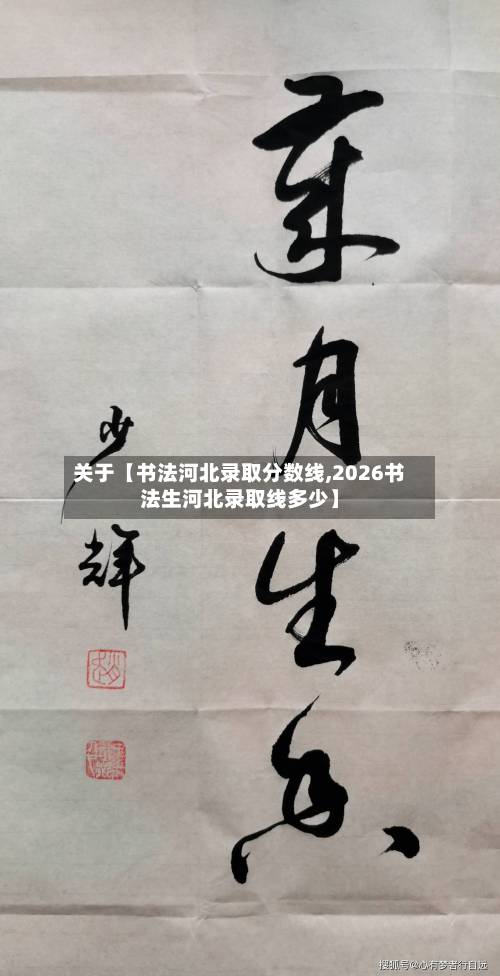 歲月生香
少輝
关于【书法河北录取分数线,2026书
法生河北录取线多少】
搜狐号@心有梦者行自远